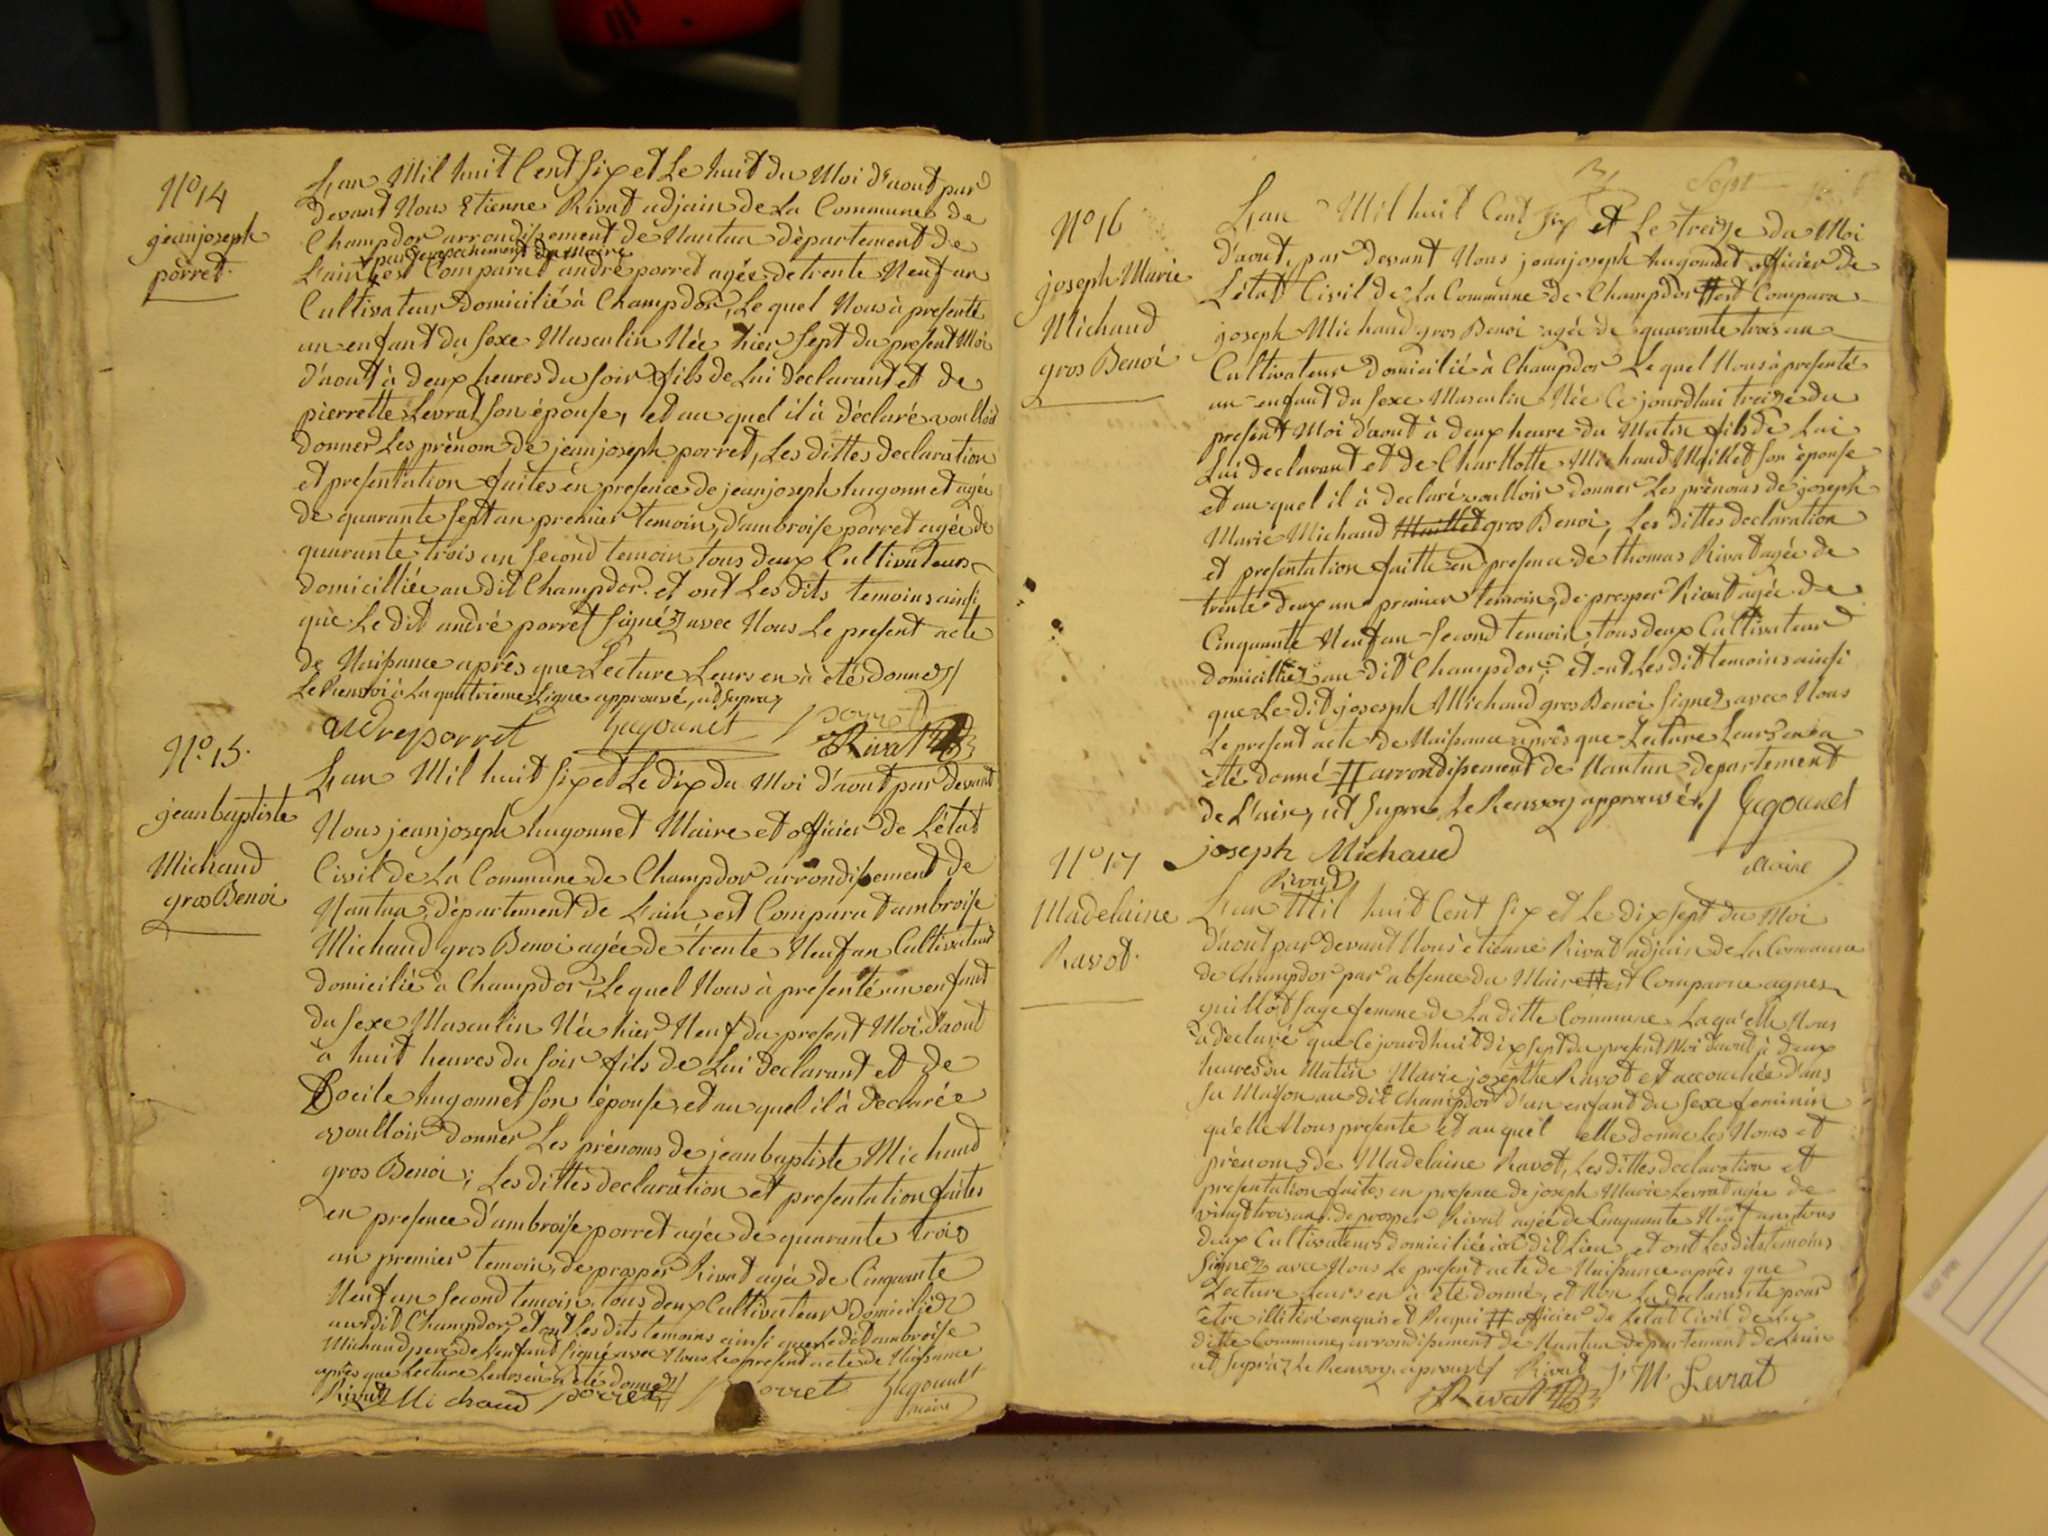 N.º 14
jeanjoseph
porret.
L'an Mil huit Cent Six et Le huit du Moi d'aout par
devant Nous Etienne Rivat adjoin de La Commune de
Champdor arrondissement de Nantua dèpartement de
par Empechement du Maire
L'ain, est Comparut andré porret agée de trente Neuf an
Cultivateur domicilié à Champdor, Le quel Nous à presenté
un enfant du Sexe Masculin Née hier Sept du present Moi
d'aout à deux heures du Soir fils de Lui declarant et de
pierrette Levrat Son épouse, et au quel il à déclaré voulloir
donner Les prènom de jeanjoseph porret, Les dittes declaration
et presentation faites en presence de jeanjoseph hugonnet agée
de quarante Sept an premier temoin, d'ambroise porret agée de
quarante trois an Second temoin tous deux Cultivateurs
domicilliée au dit Champdor. et ont Les dits temoins ainsi
que Le dit andré porret Signéz avec Nous Le present acte
de Naissance aprês que Lecture Leurs en à été donnez
Le Renvoi à La quatrieme Ligne approuvé, ut Supra
andre porret hugonnet porret
Rivat
N.º 15.
jean baptiste
Michaud
gros Benoi
L'an Mil huit Six et Le dix du Moi d'aout par devant
Nous jeanjoseph hugonnet Maire et officier de L'état
Civil de La Commune de Champdor arrondissement de
Nantua, dèpartement de L'ain est Comparut ambroise
Michaud gros Benoi agée de trente Neuf an Cultivateur
domicilié à Champdor, Le quel Nous à presenté un enfant
du Sexe Masculin Née hier Neuf du present Moi d'aout
à huit heures du Soir fils de Lui declarant et de
hugonnet Son épouse, et au quel il à declarée
voulloir donner Les prènoms de jean baptiste Michaud
gros Benoi; Les dittes declaration et presentation faites
en presence d'ambroise porret agée de quarante trois
an premier temoin, de prosper Rivat agée de Cinquante
Neuf an Second temoin, tous deux Cultivateur domiciliéz
au dit Champdor, et ont Les dits temoins ainsi que Le dit ambroise
Michaud pere de L'enfant Signé avec Nous Le present acte de Naissance
aprês que Lecture Leurs en à été donnez
Rivat Michaud porret porret hugonnet
maire
N.º 16
joseph Marie
Michaud
gros Benoi
L'an Mil huit Cent Six et Le treize du Moi
d'aout, par devant Nous jeanjoseph hugonnet officier de
L'état Civil de La Commune de Champdor # est Compara
joseph Michaud gros Benoi agée de quarante trois an
Cultivateur domicilié à Champdor Le quel Nous à presenté
un enfant du Sexe Masculin Née Ce jourdhui treize du
present Moi d'aout à deux heure du Matin fils de Lui
Lui declarant et de Charllotte Michaud Maillet Son épouse
et au quel il à declaré voulloir donner Les prènoms de joseph
Marie Michaud Maillet gros Benoi, Les dittes declaration
et presentation faitte en presence de thomas Rivat agée de
trente deux an premier temoin, de prosper Rivat agée de
Cinquante Neuf an Second temoin, tous deux Cultivateur
domicilliéz au dit Champdor; et ont Les dit temoins ainsi
que Le dit joseph Michaud gros Benoi Signez avec Nous
Le present acte de Naissance aprês que Lecture Leurs en a
été donné # arrondissement de Nantua departement
de L'ain, ut Supra, Le Renvoy approuvéz hugonnet
joseph Michaud maire
Rivat
N.º 17
Madelaine
Ravot.
L'an Mil huit Cent Six et Le dix Sept du Moi
d'aout par devant Nous etienne Rivat adjoin de La Commune
de Champdor par absence du Maire # est Comparue agnes
guillot Sage femme de La ditte Commune La qu'elle Nous
à declaré que Ce jourdhuit dix Sept du present Moi d'aout à deux
heures du Matin Marie josepthe Ravot est accouchée d'ans
Sa Maison au dit Champdor d'un enfant du Sexe feminin
qu'elle Nous presente et au quel elle donne Les Noms et
prènoms de Madelaine Ravot, Les dittes declaration et
presentation faites en presence de joseph Marie Levrat agée de
vingt trois an. de prosper Rivat agée de Cinquante Neuf an, tous
deux Cultivateurs domiciliée au dit Lieu, et ont Les dits temoins
Signéz avec Nous Le present acte de Naissance aprês que
Lecture Leurs en à été donné, et Non La declarante pour
être illitéré enquis et Requi # officier de L'état Civil de La
ditte Commune, arrondissement de Nantua departement de L'ain
ut Supra, Le Renvoy aprouvéz Rivat J. M. Levrat
Rivat